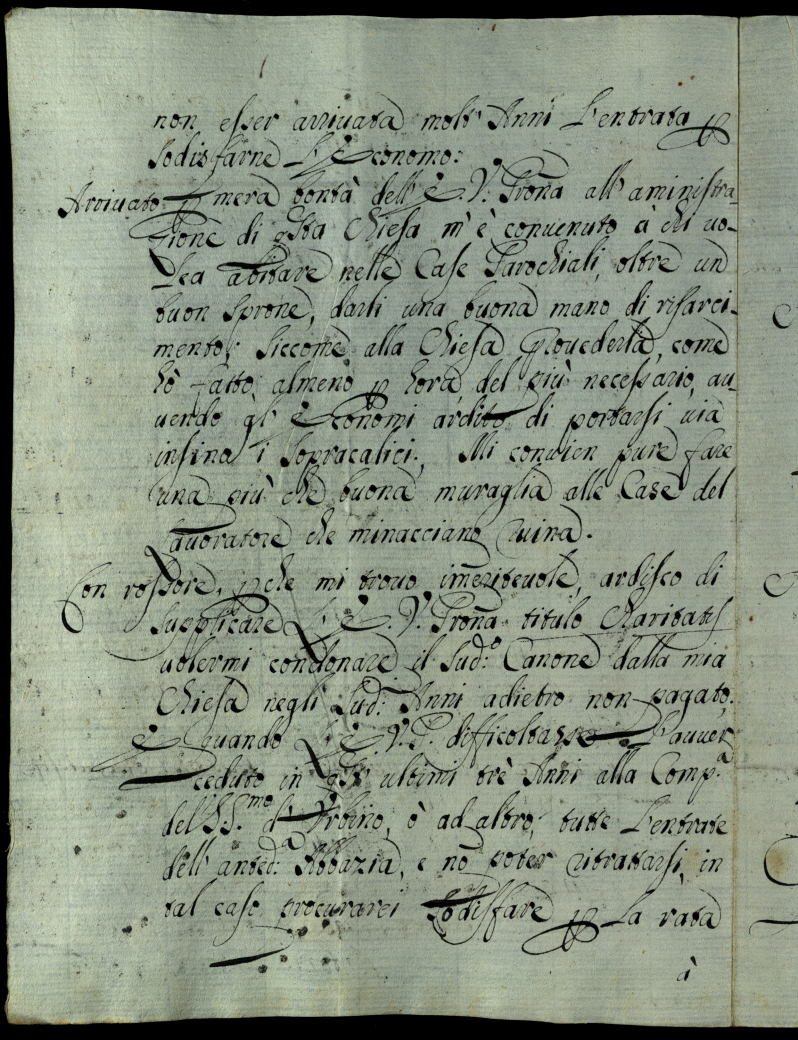 non esser arriuata molt' Anni L'entrata p
sodisfarne L'Economo:
Arriuato p mera bontà dell'E. V. Proña all'aministra-
zione di qsta Chiesa m'è conuenuto à chi uo-
lea abitare nelle Case Parochiali, oltre un
buon sprone, darli una buona mano di risarci-
mento; siccome alla Chiesa prouederla, come
hò fatto almeno p hora, del più necessario, au-
uendo gl'Economi ardito di portarsi uia
insino i sopracalici. Mi conuien pure fare
una più che buona muraglia alle Case del
lauoratore che minacciano ruina.
Con rossore, pche mi trouo imeriteuole, ardisco di
supplicare L'E. V. Proña titulo Charitatis
uolermi condonare il sud.o Canone dalla mia
Chiesa negli sud.i Anni adietro non pagato.
E quando L'E. V. P. difficoltasse L'auuer
ceduto in qsti ultimi trè Anni alla Comp.a
del SS.mo d'Vrbino, ò ad altro, tutte L'entrate
dell'anted.a Abbazia, e nō poter ritrattarsi, in
tal caso procurarei sodisfare p La rata
à